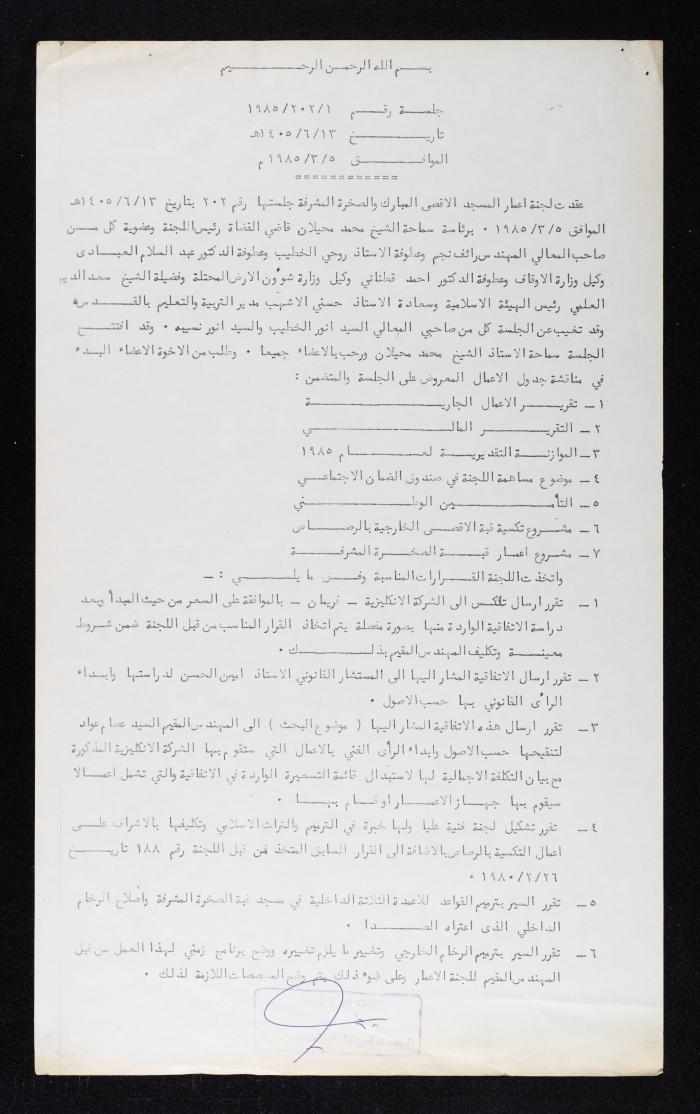 بسم الله الرحمن الرحيم
جلسة رقم ١٩٨٥/٢٠٢/١
تاريخ ١٤٠٥/٦/١٣هـ
الموافق ١٩٨٥/٣/٥ م
============
عقدت لجنة اعمار المسجد الاقصى المبارك والصخرة المشرفة جلستها رقم ٢٠٢ بتاريخ ١٤٠٥/٦/١٣هـ
الموافق ١٩٨٥/٣/٥ ٠ برئاسة سماحة الشيخ محمد محيلان قاضي القضاة رئيس اللجنة وعضوية كل من
صاحب المعالي المهندس رائف نجم وعطوفة الاستاذ روحي الخطيب وعطوفة الدكتور عبد السلام العبادى
وكيل وزارة الاوقاف وعطوفة الدكتور احمد قطناني وكيل وزارة شوٴون الارض المحتلة وفضيلة الشيخ سعد الدين
العلمي رئيس الهيئة الاسلامية وسعادة الاستاذ حسني الاشهب مدير التربية والتعليم بالقدس
وقد تغيب عن الجلسة كل من صاحبي المعالي السيد انور الخطيب والسيد انور نسيبه ٠ وقد افتتح
الجلسة سماحة الاستاذ الشيخ محمد محيلان ورحب بالاعضاء جميعا ٠ وطلب من الاخوة الاعضاء البدء
في مناقشة جدول الاعمال المعروض على الجلسة والمتضمن :
١ – تقرير الاعمال الجارية
٢ – التقرير المالي
٣ – الموازنة التقديرية لعام ١٩٨٥
٤ – موضوع مساهمة اللجنة في صندوق الضمان الاجتماعي
٥ – التأمين الوطني
٦ – مشروع تكسية قبة الاقصى الخارجية بالرصاص
٧ – مشروع اعمار قبة الصخرة المشرفة
واتخذت اللجنة القرارات المناسبة وفق ما يلي : –
١ – تقرر ارسال تلكس الى الشركة الانكليزية – فريمان – بالموافقة على السعر من حيث المبدأ وبعد
دراسة الاتفاقية الواردة منها بصورة مفصلة يتم اتخاذ القرار المناسب من قبل اللجنة ضمن شروط
معينة وتكليف المهندس المقيم بذلك ٠
٢ – تقرر ارسال الاتفاقية المشار اليها الى المستشار القانوني الاستاذ امين الحسن لدراستها وابداء
الرأى القانوني بها حسب الاصول ٠
٣ – تقرر ارسال هذه الاتفاقية المشار اليها ( موضوع البحث ) الى المهندس المقيم السيد عصام عواد
لتنقيحها حسب الاصول وابداء الرأى الفني بالاعمال التي ستقوم بها الشركة الانكليزية المذكورة
مع بيان التكلفة الاجمالية لها لاستبدال قائمة التسعيرة الواردة في الاتفاقية والتي تشمل اعمالا
سيقوم بها جهاز الاعمار او قام بها ٠
٤ – تقرر تشكيل لجنة فنية عليا ولها خبرة في الترميم والتراث الاسلامي وتكليفها بالاشراف على
اعمال التكسية بالرصاص بالاضافة الى القرار السابق المتخذ من قبل اللجنة رقم ١٨٨ تاريخ
١٩٨٠/٢/٢٦ ٠
٥ – تقرر السير بترميم القواعد للاعمدة الثلاثة الداخلية في مسجد قبة الصخرة المشرفة واصلاح الرخام
الداخلي الذى اعتراه الصدا ٠
٦ – تقرر السير بترميم الرخام الخارجي وتغيير ما يلزم تغييره ووضع برنامج زمني لهذا العمل من قبل
المهندس المقيم للجنة الاعمار وعلى ضوء ذلك يتم وضع المخصصات اللازمة لذلك ٠